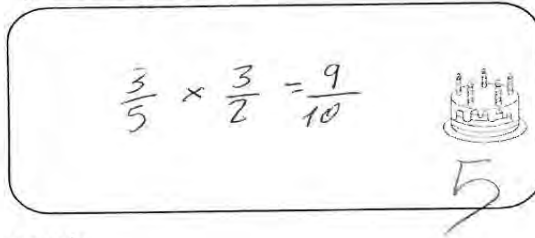 3/5 × 3/2 = 9/10
5